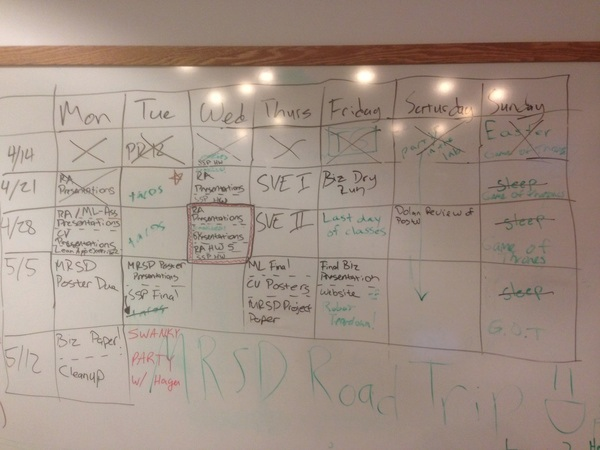 Mon Tue Wed Thurs Friday Saturday Sunday
4/14 PR12 Easter
SSP HW
4/21 RA Presentations
tacos
RA Presentations
SSP HW
SVE I
Biz Dry Run
sleep
4/28 RA/ML-Ass Presentations
CV Presentations
tacos
RA Presentations
Presentations
RA HW 5
SSP HW
SVE II
Last day of classes
Dolan Review of
sleep
Game of Thrones
5/5 MRSD Poster Due
MRSD Poster Presentations
SSP Final
tacos
ML Final
CV Posters
MRSD Project Paper
Final Biz Presentation
website
Robot
sleep
G.O.T
5/12 Biz Paper!
Cleanup
SWANKY PARTY w/ Hagen
MRSD Road Trip